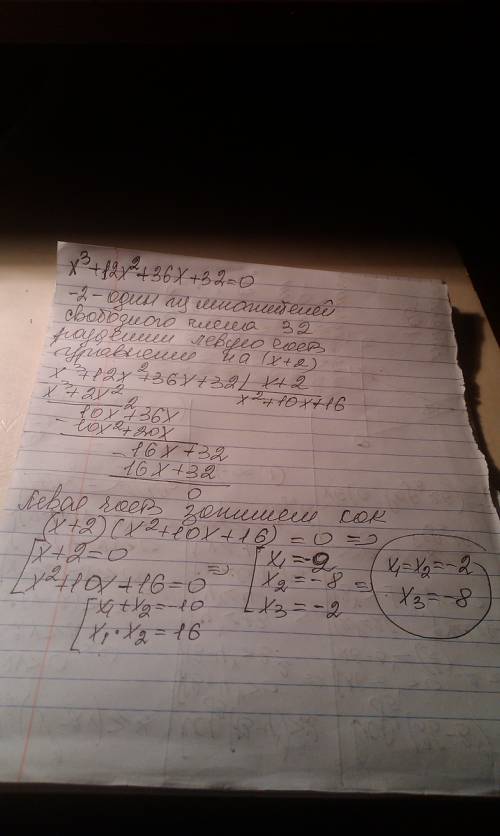 x³+12x²+36x+32=0
-2 - один из множителей
свободного члена 32
разделим левую часть
уравнения на (x+2)
x³+12x²+36x+32 | x+2
x³+2x² x²+10x+16
10x²+36x
- 10x²+20x
- 16x+32
16x+32
0
левая часть запишем как
(x+2)(x²+10x+16) = 0 =>
[x+2=0
x²+10x+16=0 =>
[x₁+x₂=-10
x₁·x₂=16
[x₁=-2
x₂=-8 =
x₃=-2
x₁=x₂=-2
x₃=-8